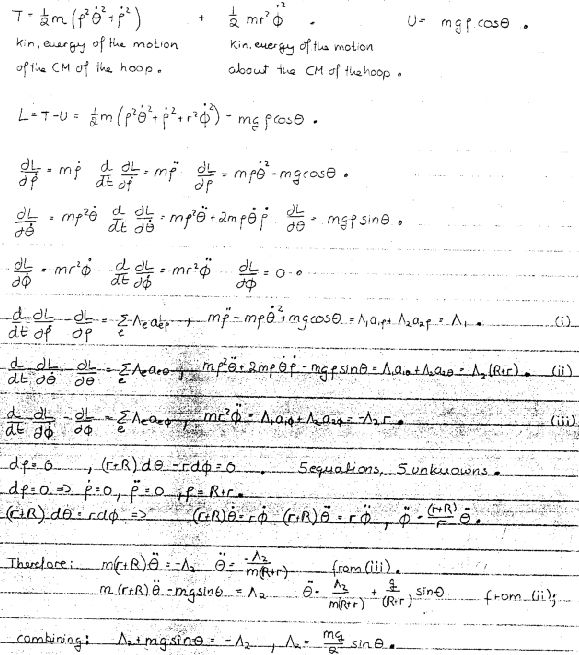 T = ½m(ρ²θ̇² + ρ̇²) + ½ mr²φ̇² . U = mgρcosθ .
kin, energy of the motion kin, energy of the motion
of the CM of the hoop . about the CM of the hoop .
L = T-U = ½m(ρ²θ̇² + ρ̇² + r²φ̇²) - mgρcosθ .
∂L/∂ρ̇ = mρ̇ d/dt ∂L/∂ρ̇ = mρ̈ ∂L/∂ρ = mρθ̇² - mgcosθ .
∂L/∂θ̇ = mρ²θ̇ d/dt ∂L/∂θ̇ = mρ²θ̈ + 2mρθ̇ρ̇ ∂L/∂θ = mgρsinθ .
∂L/∂φ̇ = mr²φ̇ d/dt ∂L/∂φ̇ = mr²φ̈ ∂L/∂φ = 0 .
d/dt ∂L/∂ρ̇ - ∂L/∂ρ = Σ Λₑaₑρ , mρ̈ - mρθ̇² + mgcosθ = Λ₁a₁ρ + Λ₂a₂ρ = Λ₁ . (i)
d/dt ∂L/∂θ̇ - ∂L/∂θ = Σ Λₑaₑθ , mρ²θ̈ + 2mρθ̇ρ̇ - mgρsinθ = Λ₁a₁θ + Λ₂a₂θ = Λ₂(R+r) . (ii)
d/dt ∂L/∂φ̇ - ∂L/∂φ = Σ Λₑaₑφ , mr²φ̈ = Λ₁a₁φ + Λ₂a₂φ = -Λ₂r . (iii)
dρ = 0 , (r+R)dθ - rdφ = 0 . 5 equations, 5 unknowns .
dρ = 0 => ρ̇ = 0, ρ̈ = 0 , ρ = R+r .
(r+R)dθ = rdφ => (r+R)θ̇ = rφ̇ (r+R)θ̈ = rφ̈ , φ̈ = (r+R)/r θ̈ .
Therefore: m(r+R)θ̈ = -Λ₂ θ̈ = -Λ₂/m(R+r) from (iii) .
m(r+R)θ̈ - mgsinθ = Λ₂ θ̈ = Λ₂/m(R+r) + g/(R+r) sinθ from (ii);
combining: Λ₂ + mgsinθ = -Λ₂ , Λ₂ = - mg/2 sinθ .